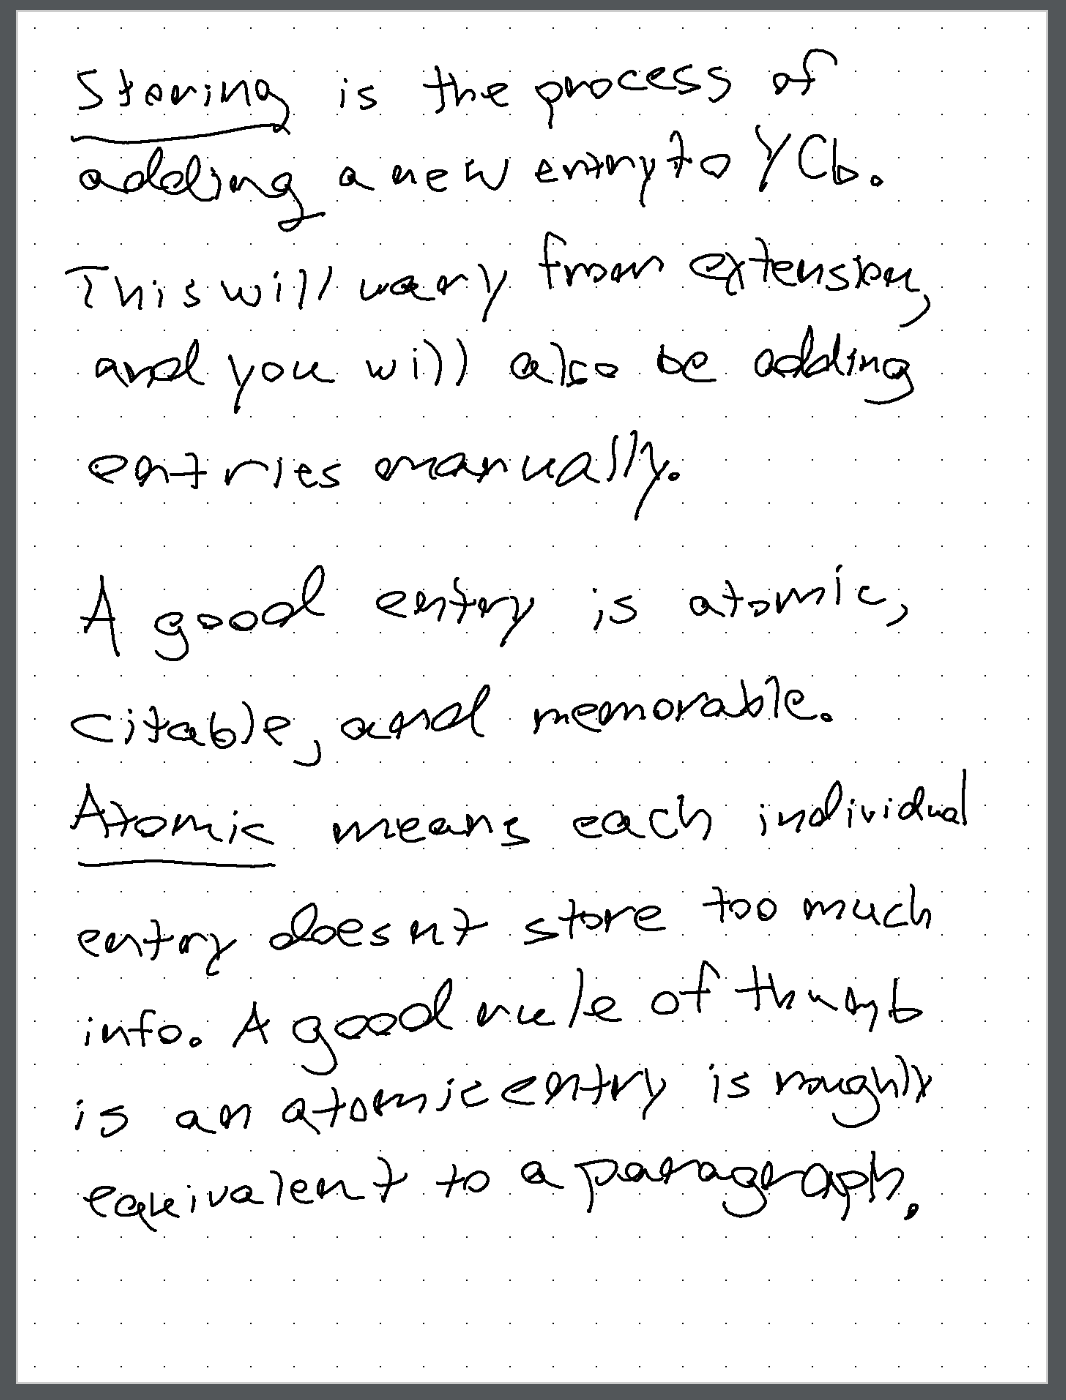 Storing is the process of
adding a new entry to YCb.
This will vary from extension,
and you will also be adding
entries manually.
A good entry is atomic,
citable, and memorable.
Atomic means each individual
entry doesnt store too much
info. A good rule of thumb
is an atomic entry is roughly
equivalent to a paragraph.